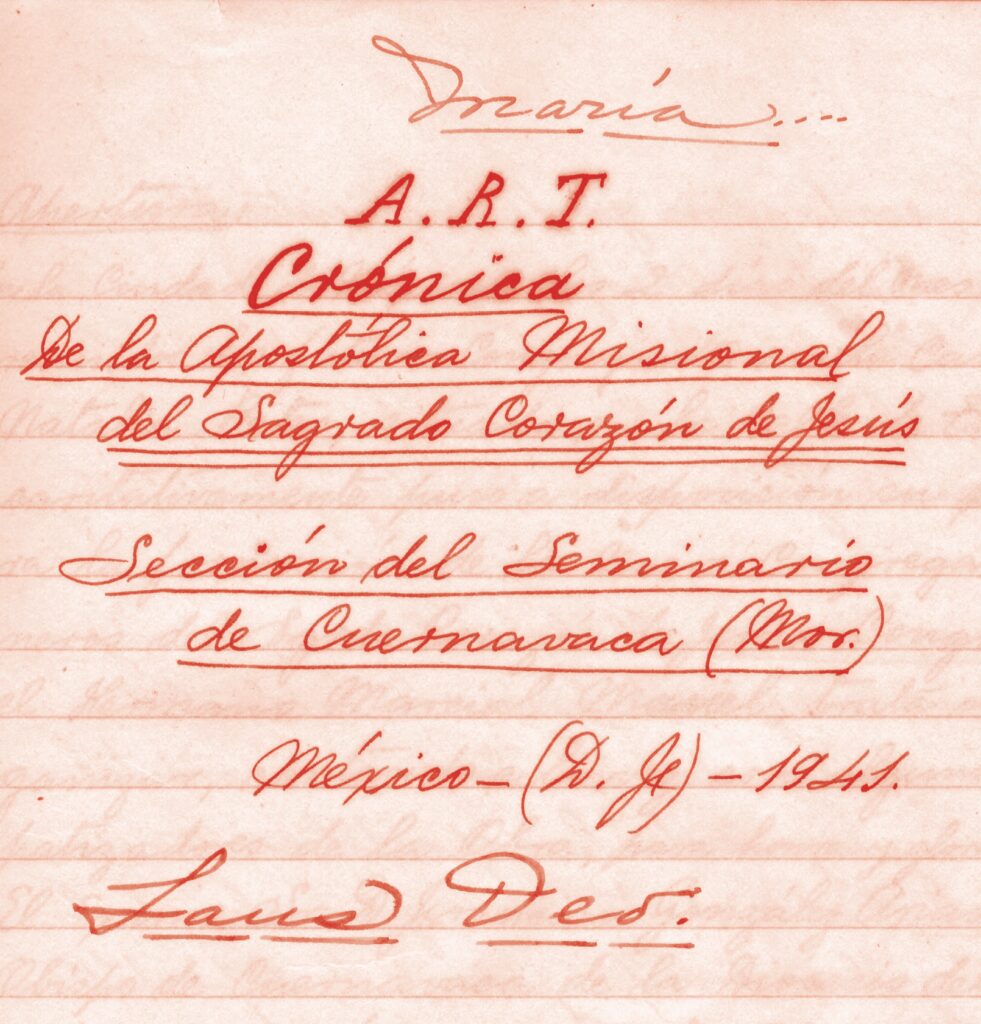 María....
A. R. T.
Crónica
De la Apostólica Misional
del Sagrado Corazón de Jesús
Sección del Seminario
de Cuernavaca (Mor.)
México – (D. F) – 1941.
Laus Deo.